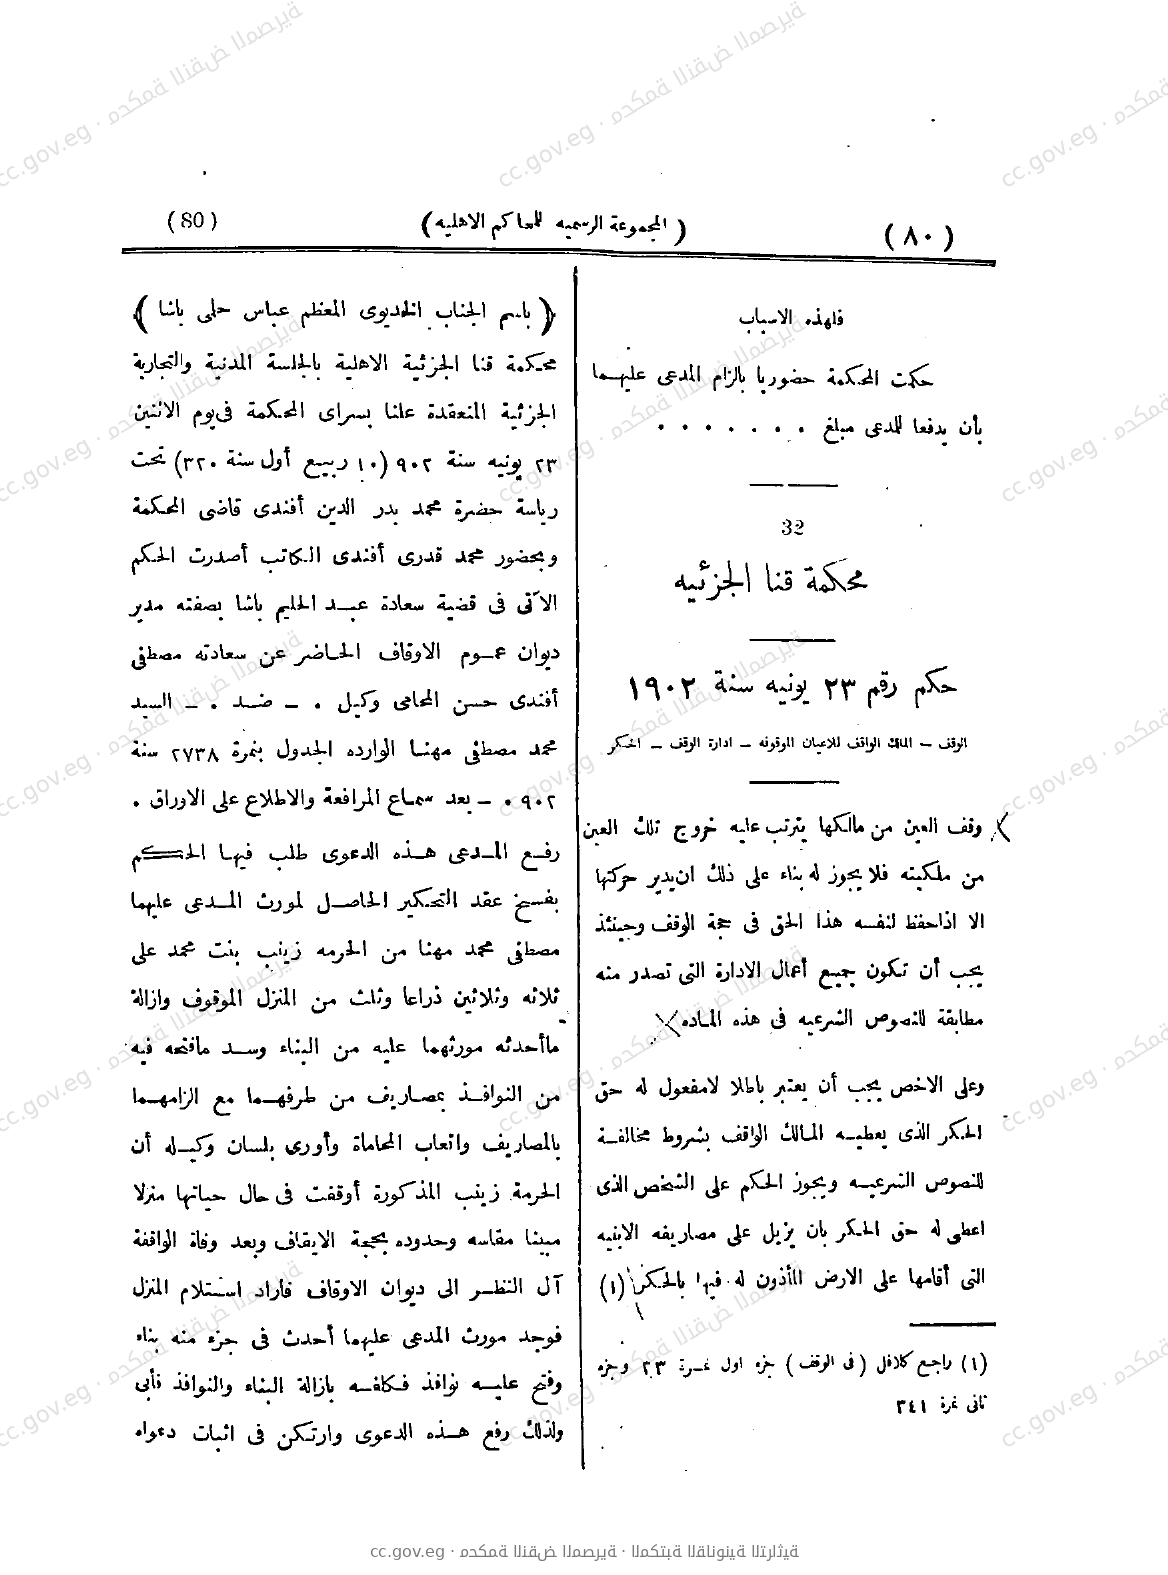 (80)
( المجموعة الرسميه للمحاكم الاهليه )
( ٨٠ )
فلهذه الاسباب
حكمت المحكمة حضوريا بالزام المدعى عليهما
بأن يدفعا للمدعى مبلغ . . . . . . .
32
محكمة قنا الجزئيه
حكم رقم ٢٣ يونيه سنة ١٩٠٢
الوقف – المالك الواقف للاعيان الموقوفه – ادارة الوقف – الحكر
وقف العين من مالكها يترتب عليه خروج تلك العين
من ملكيته فلا يجوز له بناء على ذلك ان يدير حركتها
الا اذا حفظ لنفسه هذا الحق فى حجة الوقف وحينئذ
يجب أن تكون جميع أعمال الادارة التى تصدر منه
مطابقة للنصوص الشرعيه فى هذه الماده
وعلى الاخص يجب أن يعتبر باطلا لامفعول له حق
الحكر الذى يعطيه المالك الواقف بشروط مخالفة
للنصوص الشرعيه ويجوز الحكم على الشخص الذى
اعطى له حق الحكر بان يزيل على مصاريفه الابنيه
التى أقامها على الارض المأذون له فيها بالحكر (١)
(١) راجع كلافل ( فى الوقف ) جزء اول نمرة ٢٣ وجزء
ثانى نمرة ٢٤١
( باسم الجناب الخديوى المعظم عباس حلمى باشا )
محكمة قنا الجزئية الاهلية بالجلسة المدنية والتجارية
الجزئية المنعقدة علنا بسراى المحكمة فى يوم الاثنين
٢٣ يونيه سنة ٩٠٢ (١٠ ربيع أول سنة ٣٢٠) تحت
رياسة حضرة محمد بدر الدين أفندى قاضى المحكمة
وبحضور محمد قدرى أفندى الكاتب أصدرت الحكم
الآتى فى قضية سعادة عبد الحليم باشا بصفته مدير
ديوان عموم الاوقاف الحاضر عن سعادته مصطفى
أفندى حسن المحامى وكيل . – ضد . – السيد
محمد مصطفى مهنا الوارده الجدول بنمرة ٢٧٣٨ سنة
٩٠٢ . – بعد سماع المرافعة والاطلاع على الاوراق .
رفع المدعى هذه الدعوى طلب فيها الحكم
بفسخ عقد التحكير الحاصل لمورث المدعى عليهما
مصطفى محمد مهنا من الحرمه زينب بنت محمد على
ثلاثه وثلاثين ذراعا وثلث من المنزل الموقوف وازالة
ماأحدثه مورثهما عليه من البناء وسد مافتحه فيه
من النوافذ بمصاريف من طرفهما مع الزامهما
بالمصاريف واتعاب المحاماة وأورى بلسان وكيله أن
الحرمة زينب المذكورة أوقفت فى حال حياتها منزلا
مبينا مقاسه وحدوده بحجة الايقاف وبعد وفاة الواقفة
آل النظر الى ديوان الاوقاف فاراد استلام المنزل
فوجد مورث المدعى عليهما أحدث فى جزء منه بناء
وفتح عليه نوافذ فكلفه بازالة البناء والنوافذ فأبى
ولذلك رفع هذه الدعوى وارتكن فى اثبات دعواه
cc.gov.eg · محكمة النقض المصرية · المكتبة القانونية التراثية